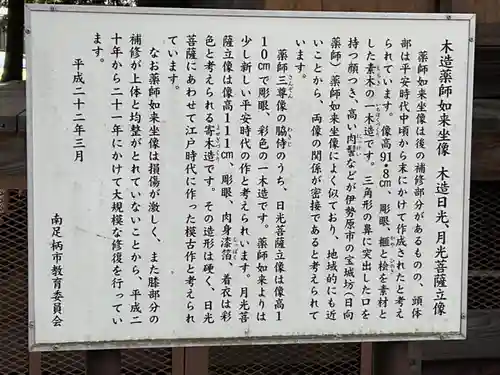 木造薬師如来坐像　木造日光、月光菩薩立像
　薬師如来坐像は後の補修部分があるものの、頭体
部は平安時代中頃から末にかけて作成されたと考え
られています。像高91.8㎝、彫眼、榧と桧を素材と
した素木の一木造です。三角形の鼻に突出した口を
持つ顔つき、高い肉髻などが伊勢原市の宝城坊（日向
薬師）薬師如来坐像によく似ており、地域的にも近
いことから、両像の関係が密接であると考えられて
います。
　薬師三尊像の脇侍のうち、日光菩薩立像は像高1
10㎝で彫眼、彩色の一木造です。薬師如来よりは
少し新しい平安時代の作と考えられています。月光菩
薩立像は像高111㎝、彫眼、肉身漆箔、着衣は彩
色と考えられる寄木造です。その造形は硬く、日光
菩薩にあわせて江戸時代に作った模古作と考えられ
ています。
　なお薬師如来坐像は損傷が激しく、また膝部分の
補修が上体と均整がとれていないことから、平成二
十年から二十一年にかけて大規模な修復を行ってい
ます。
　平成二十二年三月
南足柄市教育委員会